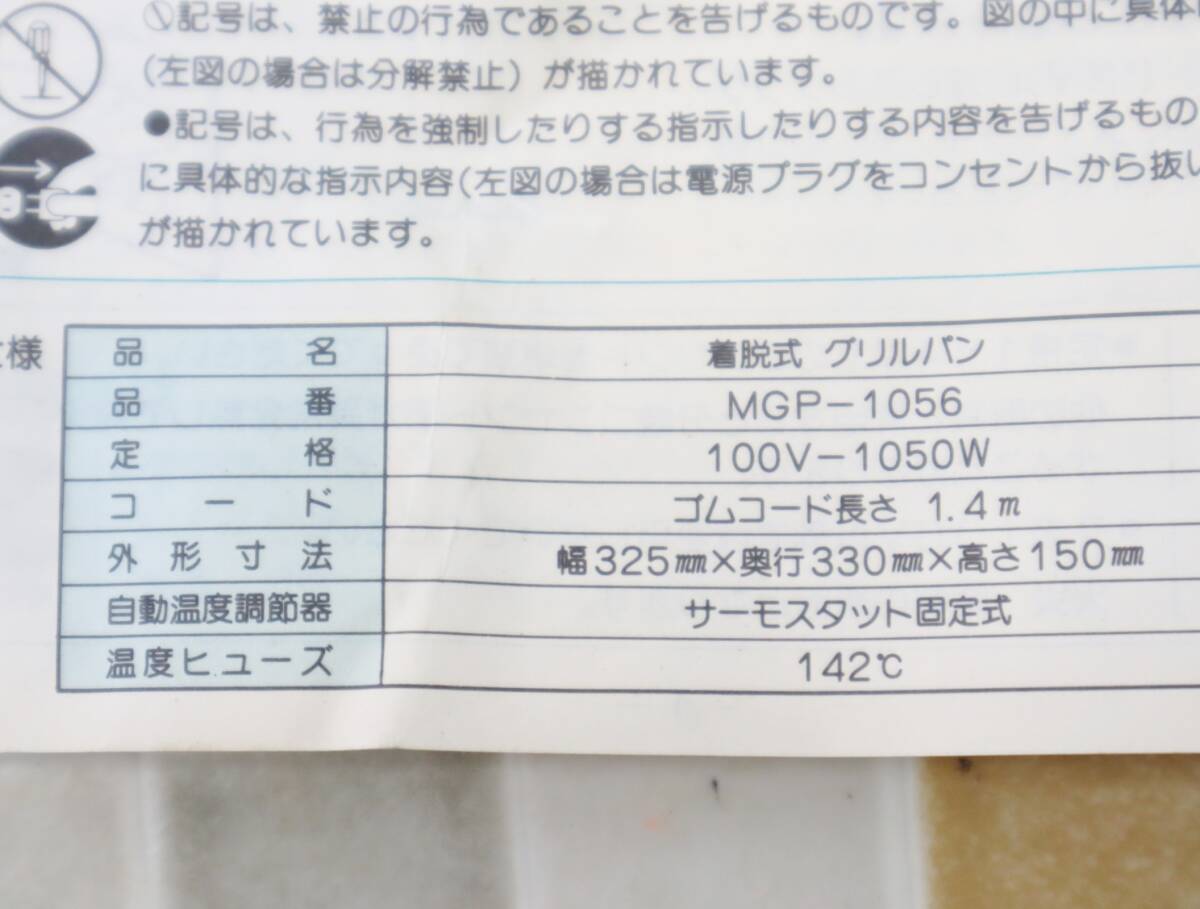 記号は、禁止の行為であることを告げるものです。図の中に具体
(左図の場合は分解禁止）が描かれています。
●記号は、行為を強制したりする指示したりする内容を告げるもの
に具体的な指示内容(左図の場合は電源プラグをコンセントから抜い
が描かれています。
様
品名 着脱式 グリルパン
品番 MGP-1056
定格 100V-1050W
コード ゴムコード長さ 1.4m
外形寸法 幅325㎜×奥行330㎜×高さ150㎜
自動温度調節器 サーモスタット固定式
温度ヒューズ 142℃